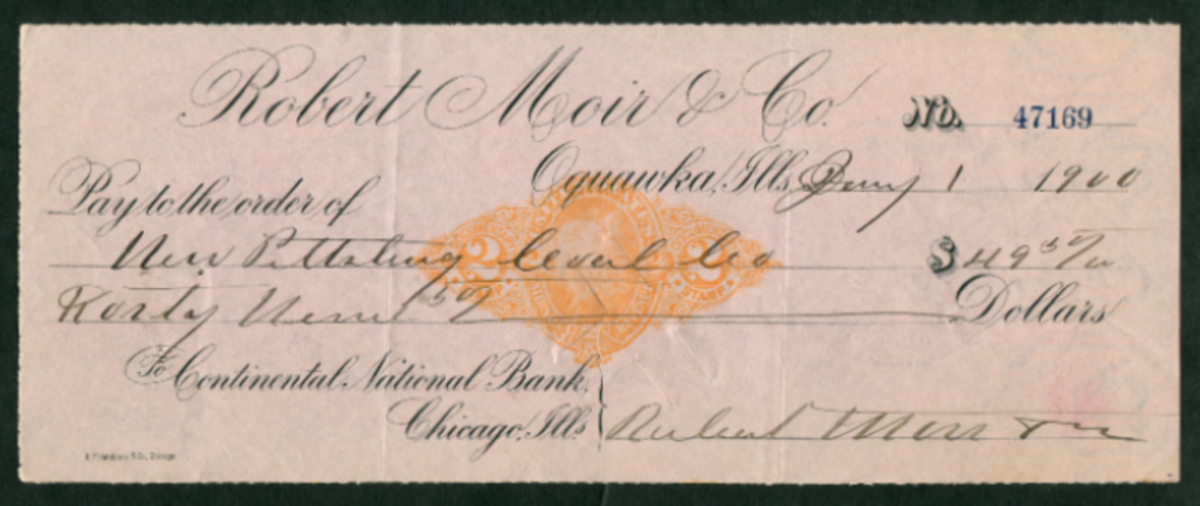 Robert Moir & Co.
No. 47169
Oquawka, Ills. Jany 1 1900
Pay to the order of
New Pittsburg Coal Co $49
2 2
Forty Nine Dollars
To Continental National Bank,
Chicago, Ills. Robert Moir